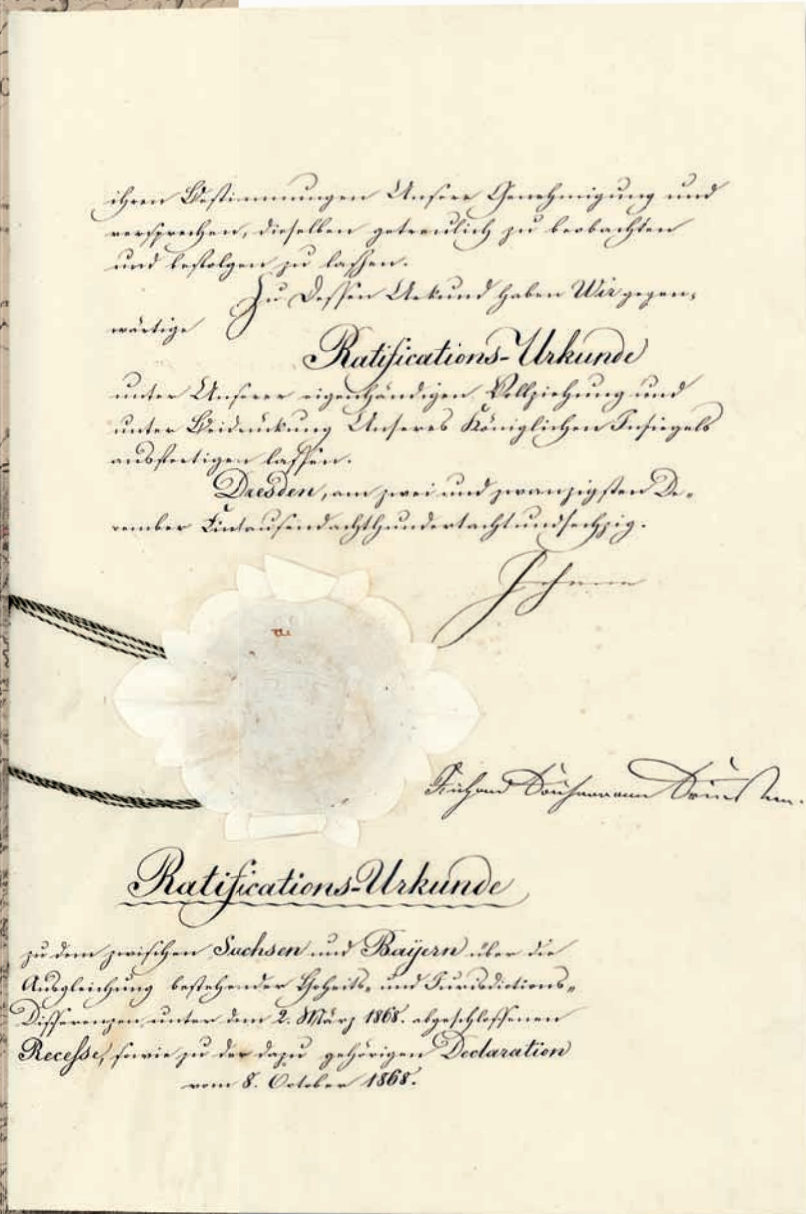 ihren Bestimmungen Unsere Genehmigung und
versprechen, dieselben getreulich zu beobachten
und befolgen zu lassen.
Zu Dessen Urkund haben Wir gegen-
wärtige
Ratifications-Urkunde
unter Unserer eigenhändigen Vollziehung und
unter Beidrückung Unseres Königlichen Insiegels
ausfertigen lassen.
Dresden, am zwei und zwanzigsten De-
cember Eintausendachthundertachtundsechzig.
Johann
Richard
Ratifications-Urkunde
zu dem zwischen Sachsen und Bayern über die
Ausgleichung bestehender Hoheits- und Jurisdictions-
Differenzen unter dem 2. März 1868. abgeschlossenen
Recesse, sowie zu der dazu gehörigen Declaration
vom 8. October 1868.